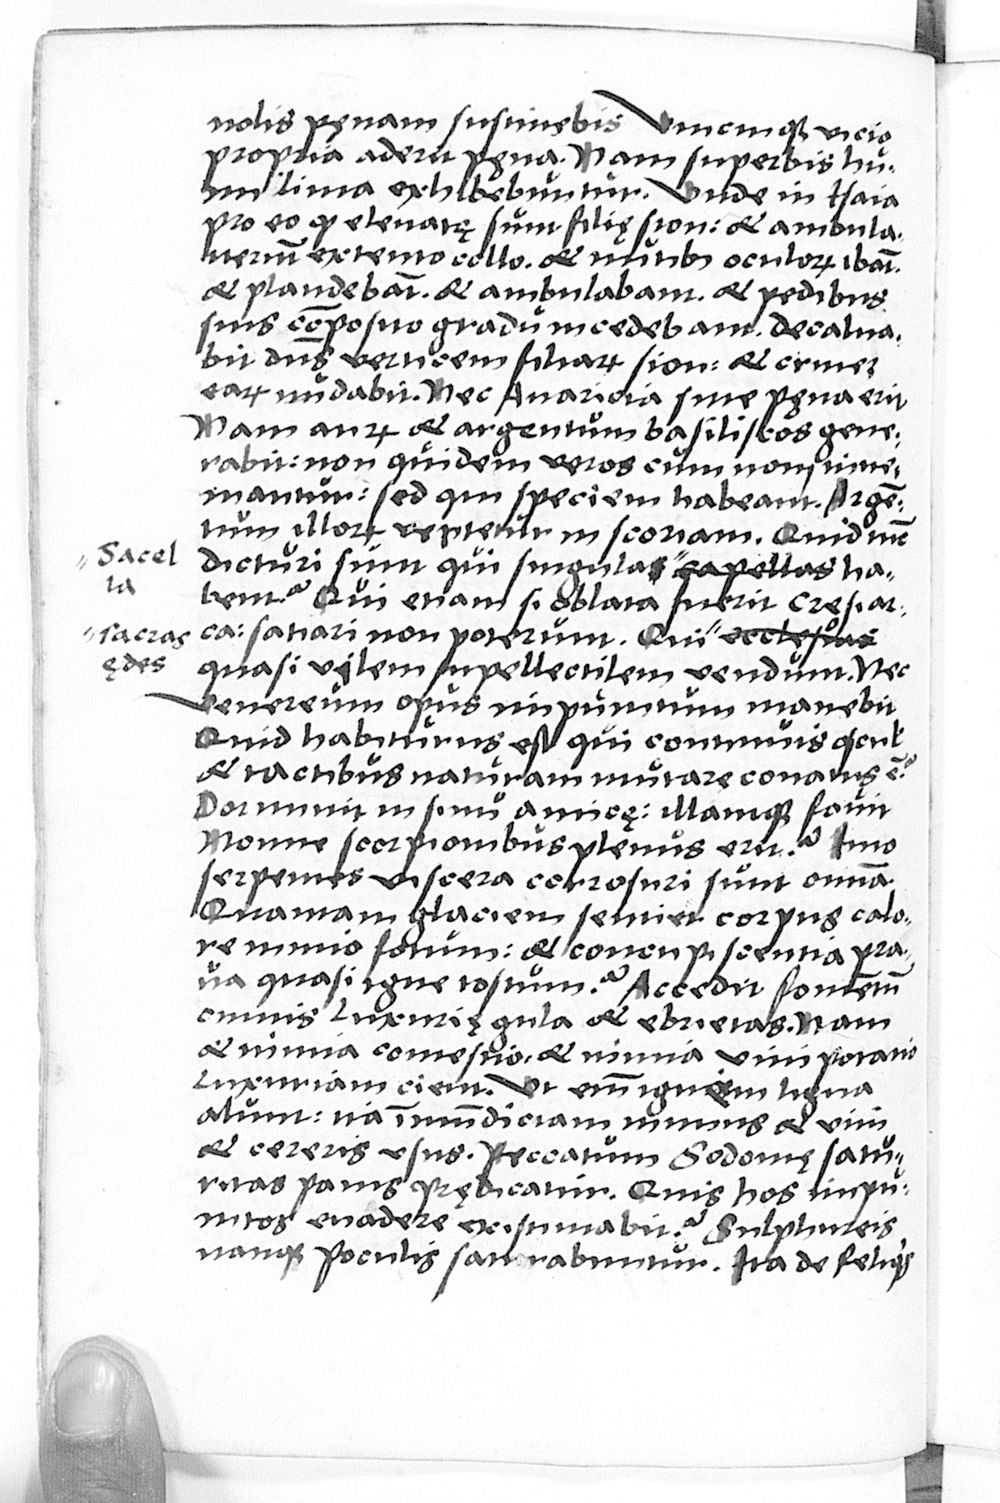 nolis pęnam sustinebis Vnicuiqꝫ vicio
propria aderit pęna. Nam superbis hu-
milima exhibebuntur. Vnde in Isaia
pro eo ꝙ eleuatę sunt filię sion: & ambula-
uerūt extento collo. & nutibꝰ oculoꝝ ibāt.
& plaudebāt. & ambulabant. & pedibus
suis cōposito gradu incedebant. decalua-
bit dn̄s verticem filiaꝝ sion: & crines
eaꝝ nudabit. Nec Auaricia sine pęna erit
Nam auꝝ & argentum basiliscos gene-
rabit: non quidem veros cum non
mantur: sed qui speciem habeant. Argē-
tum illoꝝ vertetur in scoriam. Quid nūc
dicturi sunt qui singula capellas ha-
bent? Qui etiam si oblata fuerit Cręsi ar-
ca: satiari non poterunt. Qui ecclesias
quasi vilem supellectilem vendunt. Nec
Venereum opus impunitum manebit
Quid habiturus est qui continuis
& tactibus naturam mutare conatus ē?
Dormiuit in sinu amicę: illamqꝫ fouit
Nonne scorpionibus plenus erit? Imo
serpentes viscera corrosuri sunt omnia
Quantam glaciem sentiet corpus calo-
re nimio fotum: & concupiscentia pra-
ua quasi igne tostum? Accedit fomentū
cuiuis Luxurię gula & ebrietas. Nam
& nimia comestio. & nimia vini potatio
Luxuriam cient. Vt em̄ ignem ligna
alunt: ita īmūdiciam nimius & vini
& cereris vsus. Peccatum Sodomę satu-
ritas panis prędicatur. Quis hos impu-
nitos euadere existimabit? Sulphureis
namqꝫ poculis saturabuntur. Ita de reliqs
Sacel
la
sacras
ędes